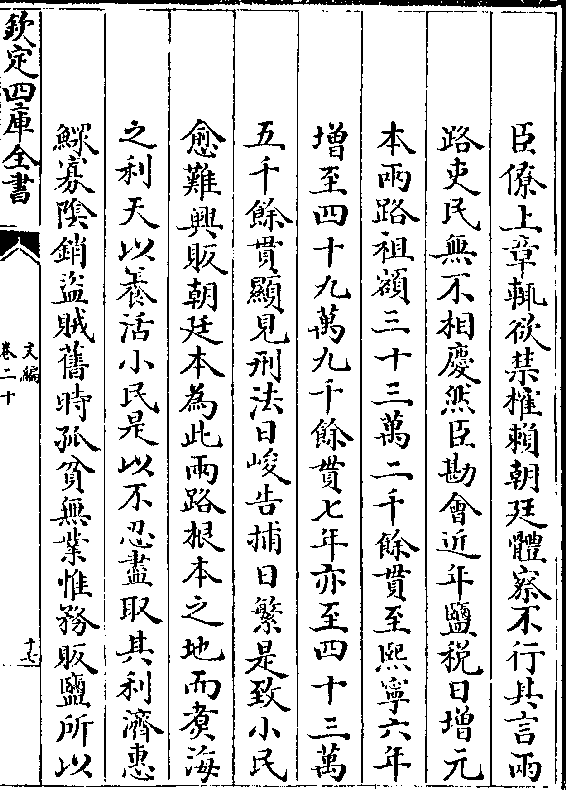 臣僚上章輒欲禁榷賴朝廷體察不行其言兩
路吏民無不相慶然臣勘會近年鹽稅日增元
本兩路祖額三十三萬二千餘貫至熙寧六年
增至四十九萬九千餘貫七年亦至四十三萬
五千餘貫顯見刑法日峻告捕日繁是致小民
愈難興販朝廷本為此兩路根本之地而煑海
之利天以養活小民是以不忍盡取其利濟惠
鰥寡隂銷盜賊舊時孤貧無業惟務販鹽所以
欽定四庫全書
文編
卷二十
十七